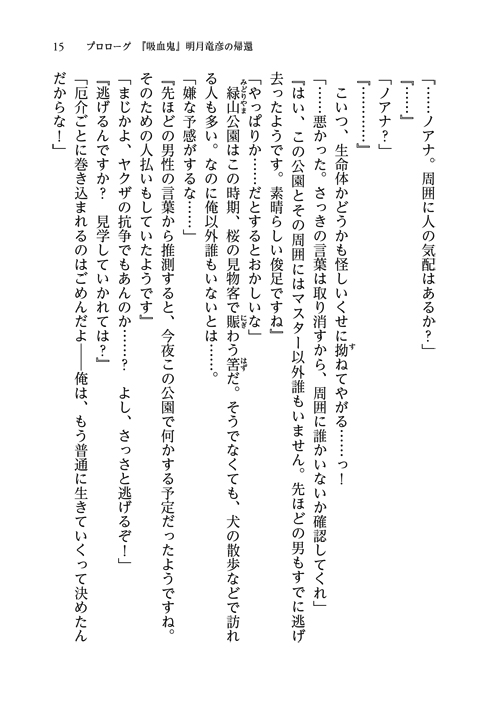 15　プロローグ　『吸血鬼』明月竜彦の帰還
「……ノアナ。周囲に人の気配はあるか？」
『……』
「ノアナ？」
『…………』
　こいつ、生命体かどうかも怪しいくせに拗ねてやがる……っ！
「……悪かった。さっきの言葉は取り消すから、周囲に誰かいないか確認してくれ」
『はい、この公園とその周囲にはマスター以外誰もいません。先ほどの男もすでに逃げ
去ったようです。素晴らしい俊足ですね』
「やっぱりか……だとするとおかしいな」
　緑山公園はこの時期、桜の見物客で賑わう筈だ。そうでなくても、犬の散歩などで訪れ
る人も多い。なのに俺以外誰もいないとは……。
「嫌な予感がするな……」
『先ほどの男性の言葉から推測すると、今夜この公園で何かする予定だったようですね。
そのための人払いもしていたようです』
「まじかよ、ヤクザの抗争でもあんのか……？　よし、さっさと逃げるぞ！」
『逃げるんですか？　見学していかれては？』
「厄介ごとに巻き込まれるのはごめんだよ――俺は、もう普通に生きていくって決めたん
だからな！」